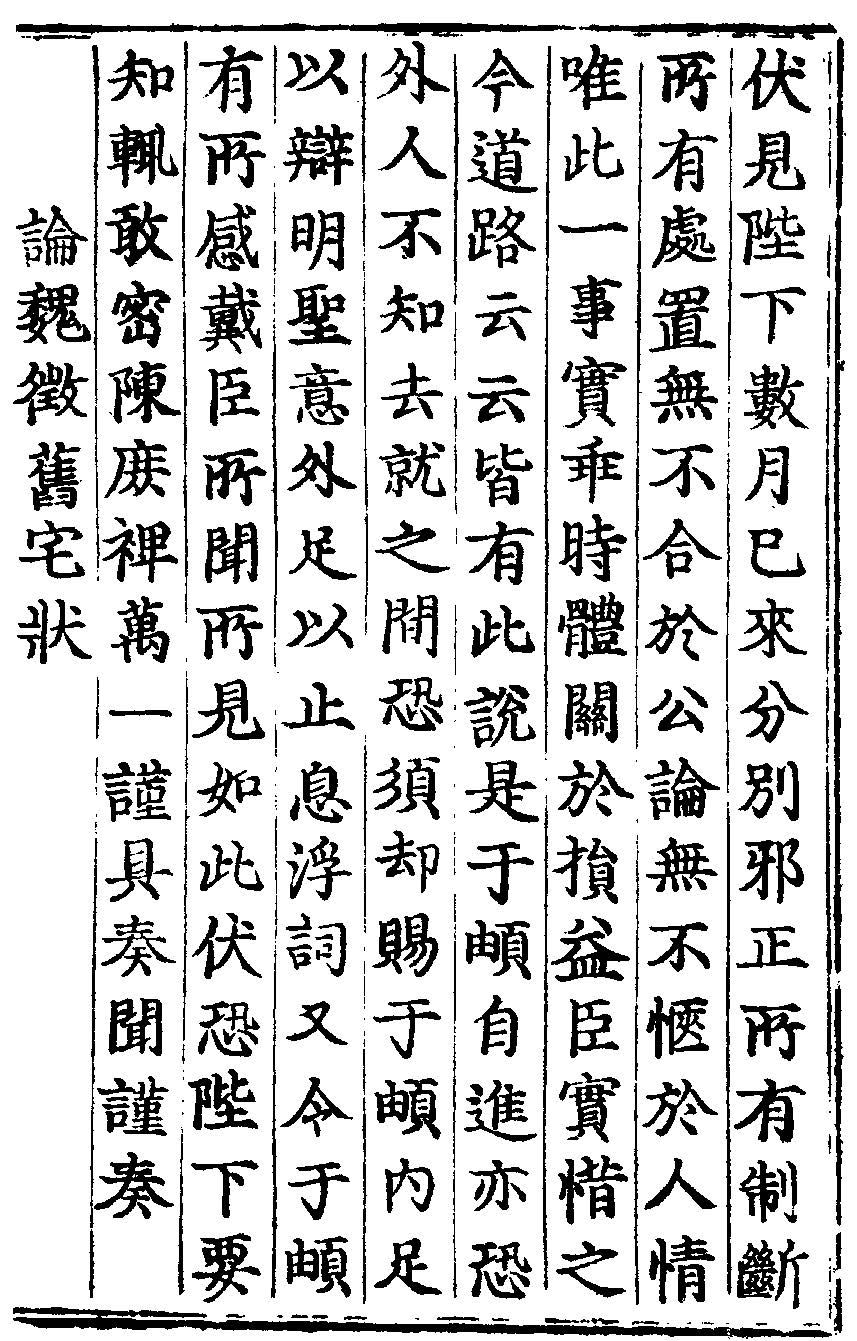 伏見陛下數月已來分別邪正所有制斷
所有處置無不合於公論無不愜於人情
唯此一事實乖時體關於損益臣實惜之
今道路云云皆有此說是于頔自進亦恐
外人不知去就之間恐須却賜于頔內足
以辯明聖意外足以止息浮詞又令于頔
有所感戴臣所聞所見如此伏恐陛下要
知輒敢密陳庶裨萬一謹具奏聞謹奏
論魏徵舊宅狀